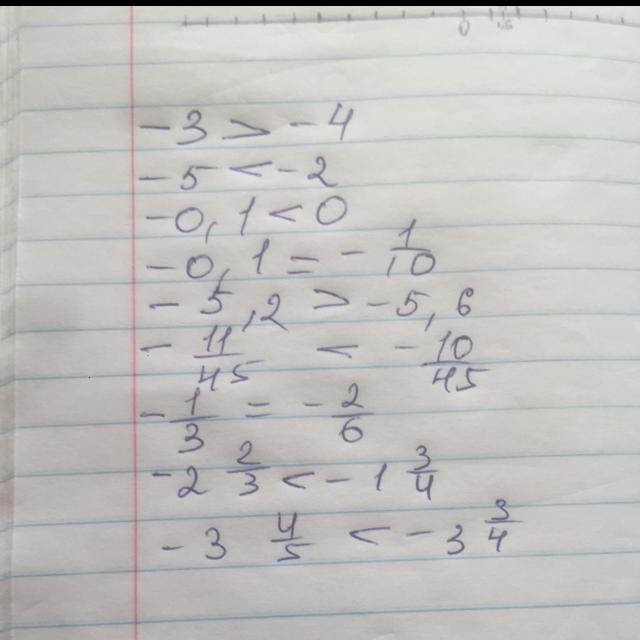 0
-3 > -4
-5 < -2
-0,1 < 0
-0,1 = -1/10
-5,2 > -5,6
-11/45 < -10/45
-1/3 = -2/6
-2 2/3 < -1 3/4
-3 4/5 < -3 3/4